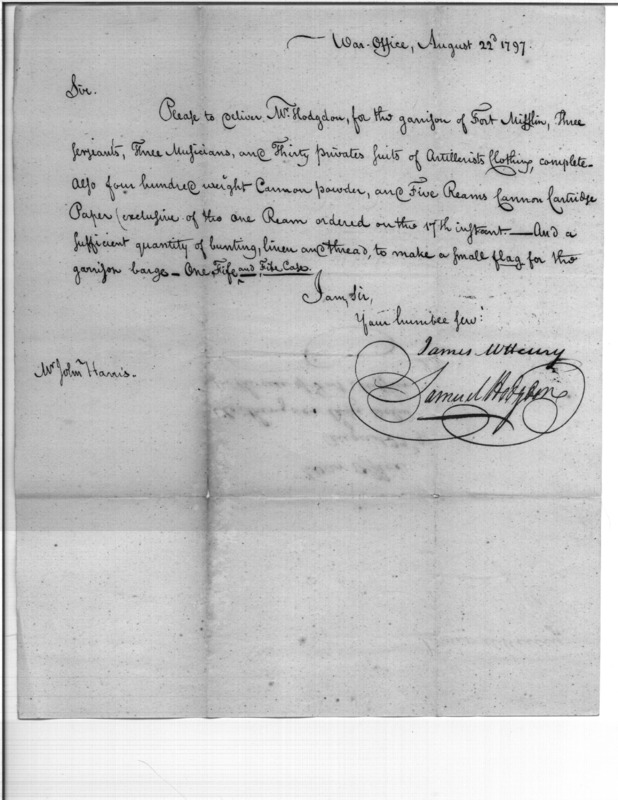 War-Office, August 22d 1797.
Sir.
Please to deliver Mr. Hodgdon, for the garrison of Fort Mifflin, Three
serjeants, Three Musicians, and Thirty privates suits of Artillerists Clothing, complete-
Also four hundred weight Cannon powder, and Five Reams Cannon Cartridge
Paper (exclusive of the one Ream ordered on the 17th instant. — And a
sufficient quantity of bunting, linen and thread, to make a small flag for the
garrison barge - One Fife and Fife Case.
I am, Sir,
Your humble Servt
James McHenry
Mr. John Harris.
Samuel Hodgdon